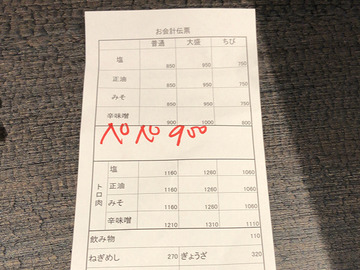 お会計伝票
普通 大盛 ちび
塩 850 950 750
正油 850 950 750
みそ 850 950 750
辛味噌 900 1000 800
900
トロ肉
塩 1160 1260 1060
正油 1160 1260 1060
みそ 1160 1260 1060
辛味噌 1210 1310 1110
飲み物 110
ねぎめし 270 ぎょうざ 320